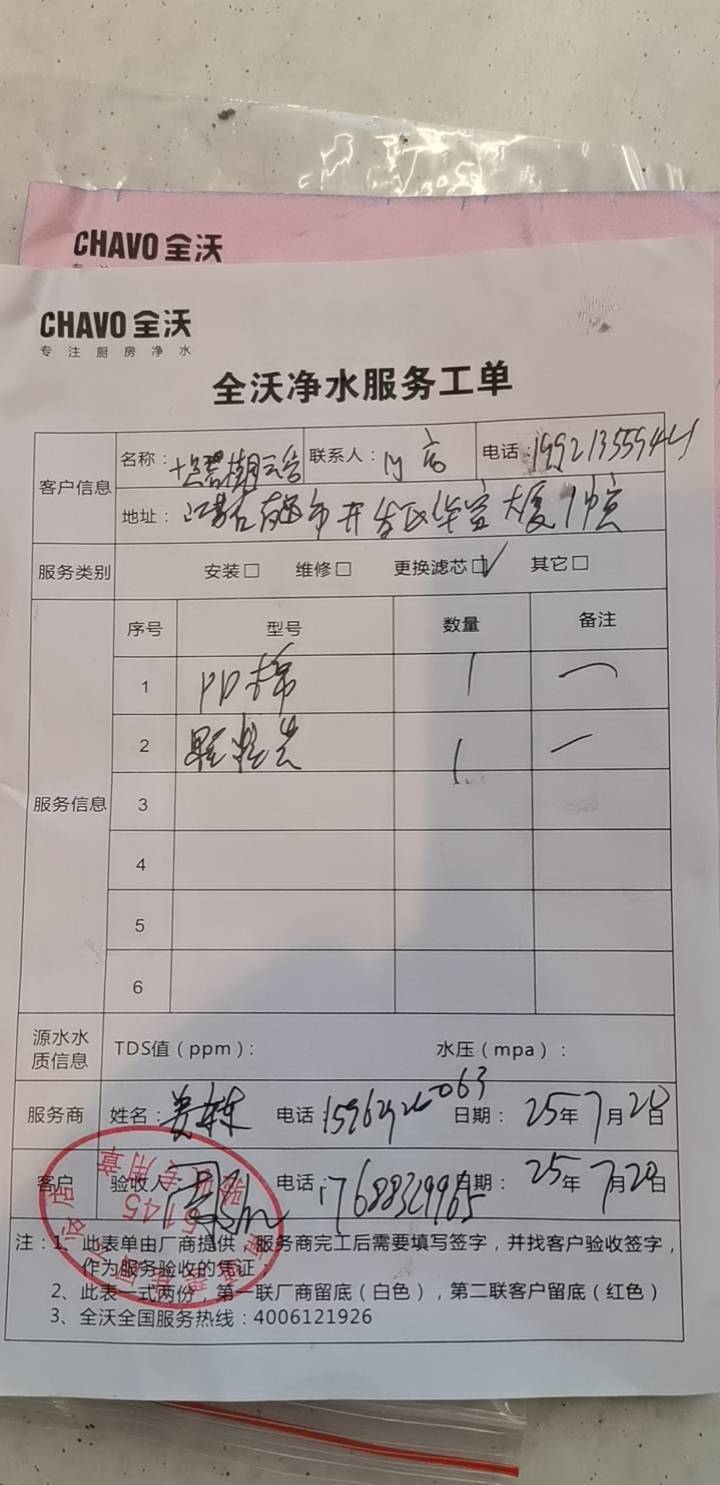 CHAVO 全沃
CHAVO 全沃
专注厨房净水
全沃净水服务工单
客户信息
名称： 联系人： 电话：19921355944
地址：江苏省 市开发区华富大厦
服务类别 安装□ 维修□ 更换滤芯□✓ 其它□
服务信息
序号 型号 数量 备注
1 PP棉 1 一
2 颗粒炭 1 一
3
4
5
6
源水水质信息 TDS值（ppm）： 水压（mpa）：
服务商 姓名： 电话 日期：25年7月20日
客户 验收人 电话：17688329965 日期：25年7月20日
注：1、此表单由厂商提供，服务商完工后需要填写签字，并找客户验收签字，
作为服务验收的凭证；
2、此表一式两份，第一联厂商留底（白色），第二联客户留底（红色）
3、全沃全国服务热线：4006121926
5145
专用章